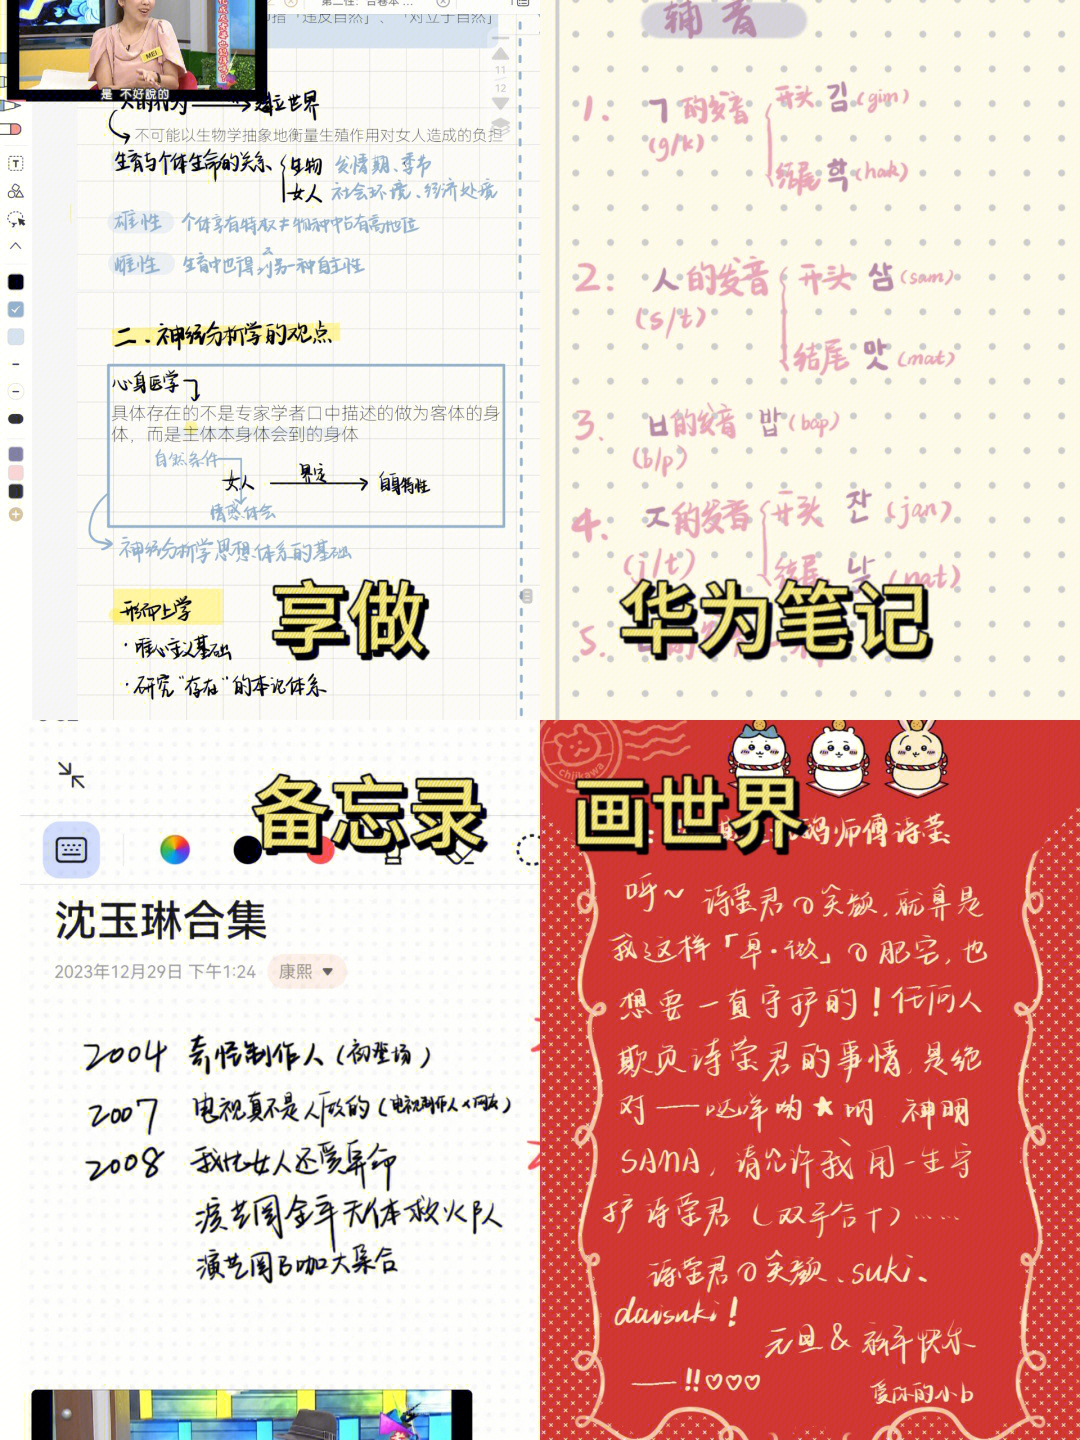 MEI
是 不好說的
11
12
不可能以生物学抽象地衡量生殖作用对女人造成的负担
生育与个体生命的关系
生物 发情期、季节
女人 社会环境、经济处境
雄性 个体享有特权 物种中占有高地位
雌性 生育中也得到另一种自主性
二.神经分析学的观点
心身医学
具体存在的不是专家学者口中描述的做为客体的身
体，而是主体本身体会到的身体
自然条件
女人 界定 自身特性
情感体会
神经分析学思想体系的基础
形而上学
·唯心主义基础
·研究“存在”的本记体系
享做
辅音
1. ㄱ的发音 开头 김(gim)
(g/k)
结尾 학(hak)
2: 人的发音 开头 삼(sam)
(s/t)
结尾 맛(mat)
3、ㅂ的发音 밥(bap)
(b/p)
4. ㅈ的发音 开头 잔(jan)
(j/t)
结尾 낮(nat)
5.
华为笔记
备忘录
沈玉琳合集
2023年12月29日 下午1:24 康熙
2004 奇怪制作人（初登场）
2007 电视真不是人做的（电视制作人×网友）
2008 我比女人还爱算命
演艺圈金牟天体救火队
演艺圈B咖大集合
画世界
chiikawa
妈师傅诗莹
呼~ 诗莹君の笑颜,就算是
我这样「卑·微」の肥宅,也
想要一直守护的！任何人
欺负诗莹君的事情,是绝
对——哒咩哟★哟 神明
SANA，请允许我用一生守
护诗莹君（双手合十）……
诗莹君の笑颜、suki、
daisuki！
元旦&新年快乐
——!!♡♡♡
爱你的小b